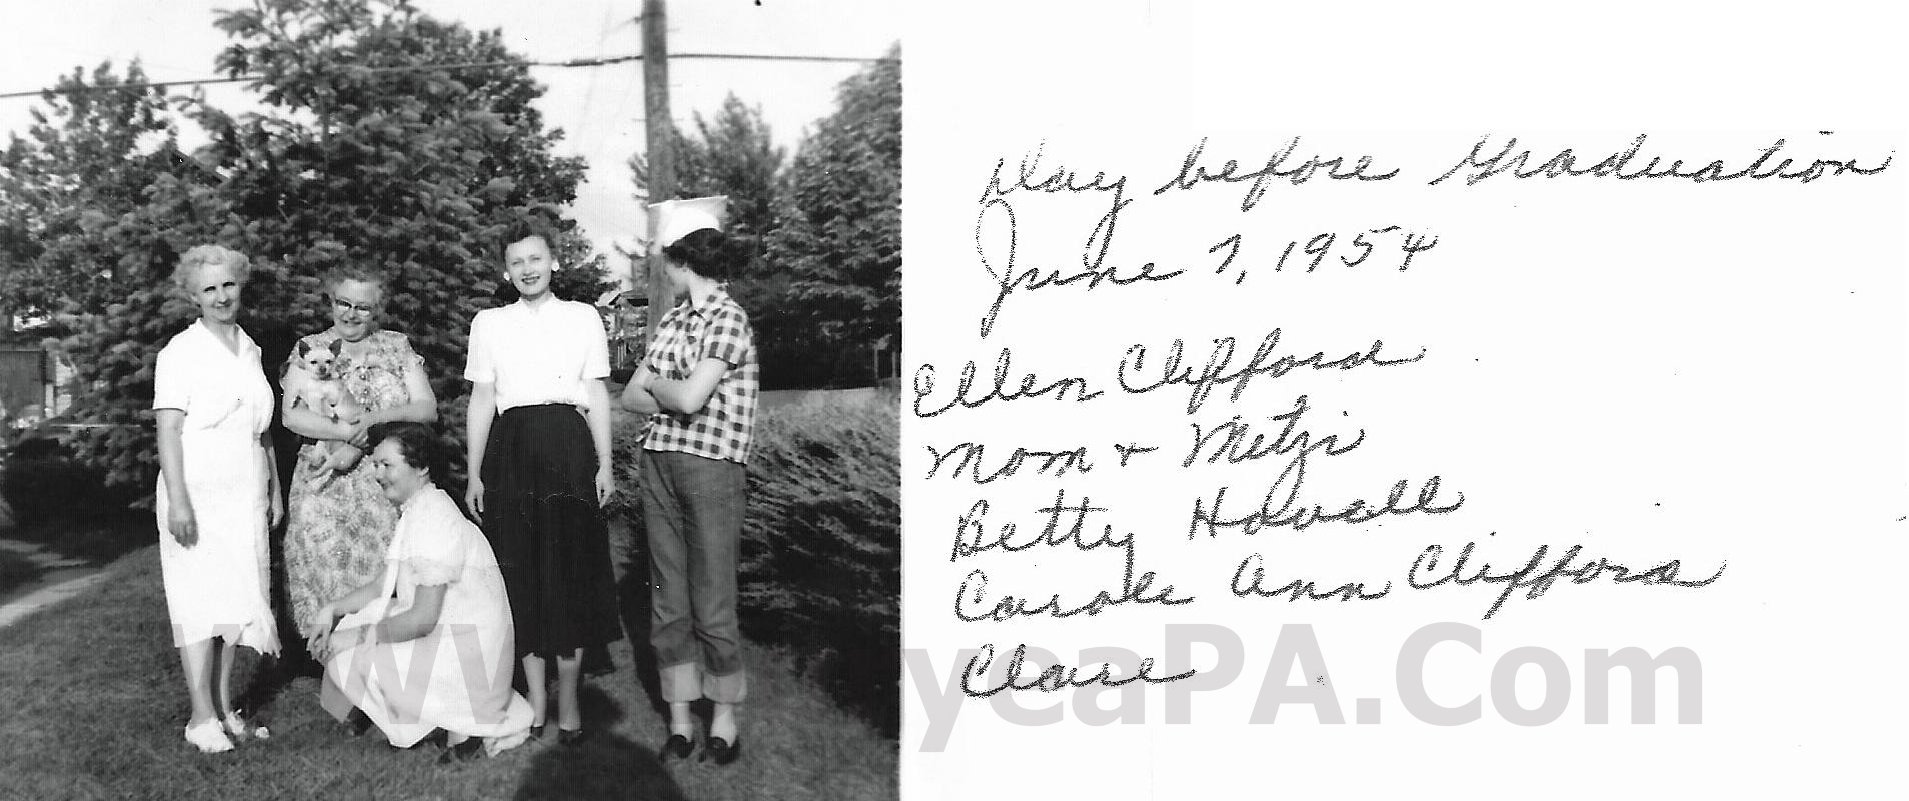 Day before Graduation
June 7, 1954
Ellen Clifford
Mom + Metzi
Betty Hovall
Carole Ann Clifford
Clare
WW yeaPA.Com